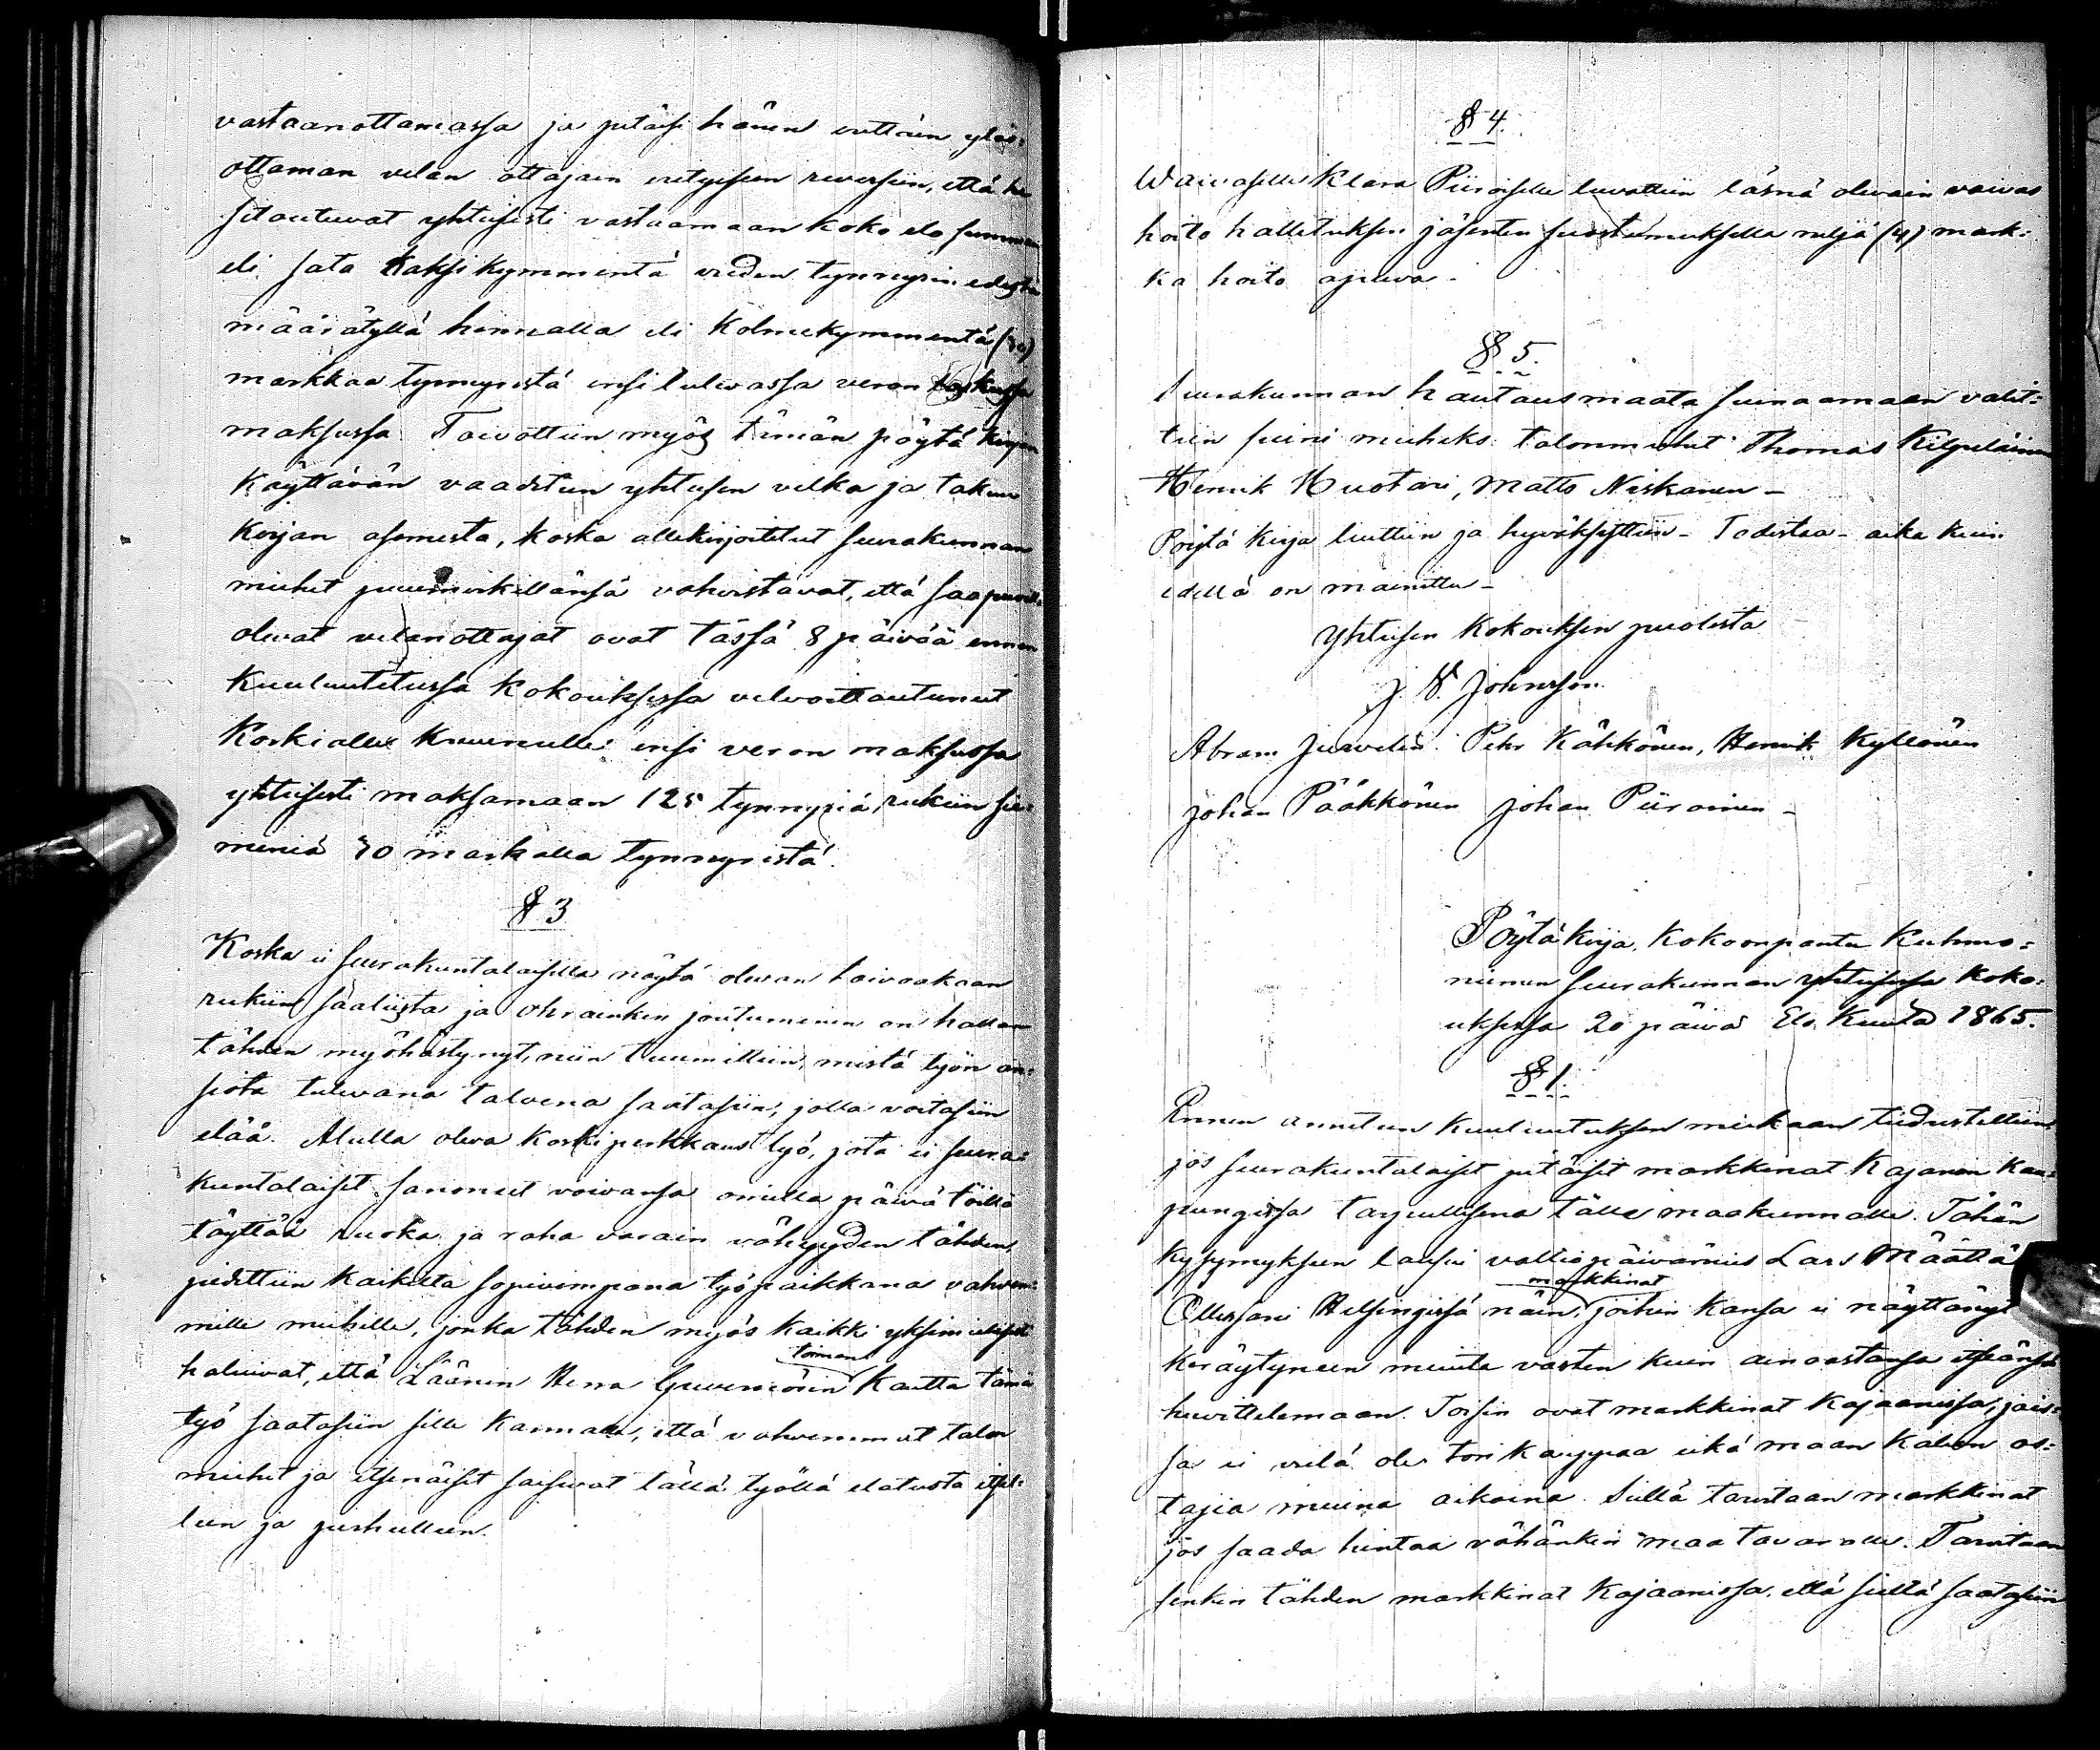 vastaanottamassa ja pitäisi hänen erittäin ylös-
ottaman velan ottajain erityiseen reversiin, että he
sitoutuvat yhteisesti vastaamaan koko elo summan
eli sata kaksikymmentä viiden tynnyrin edestä
määrätyllä hinnalla eli kolmekymmentä (30)
markkaa tynnyristä ensi tulevassa veron
maksussa. Toivottiin myös tämän pöytä kirjan
käyttävän vaaditun yhteisen velka ja takuu
kirjan asemesta, koska allekirjoitetut seurakunnan
miehet puumerkillänsä vahvistavat, että saapuvilla
olevat velanottajat ovat tässä 8 päivää ennen
kuulutetussa kokouksessa velvoittautuneet
Korkialle kruunulle ensi veron maksussa
yhteisesti maksamaan 125 tynnyriä rukiin sie-
meniä 30 markalla tynnyristä.
§ 3
Koska ei seurakuntalaisilla näytä olevan toivoakaan
rukiin saaliista ja ohrainkin joutuminen on hallan
tähden myöhästynyt, niin tuumittiin, mistä työn an-
siota tulevana talvena saataisiin, jolla voitaisiin
elää. Alulla oleva koski perkkaus työ, jota ei seura-
kuntalaiset sanoneet voivansa omilla päivä töillä
täyttää ruoka ja raha varain vähyyden tähden,
pidettiin kaikilta sopivimpana työpaikkana vahvem-
mille miehille, jonka tähden myös kaikki yksimielisesti
halusivat, että Läänin Herra Guvernörin toimen kautta tämä
työ saataisiin sille kannalle, että vahvemmat talon
miehet ja itsenäiset saisivat tällä työllä elatusta itsel-
leen ja perheelleen.
§ 4.
Waivaselle Klara Piiroiselle luvattiin läsnä olevain vaivas
hoito hallituksen jäsenten suostumuksella neljä (4) mark-
ka hoito apua -
§ 5.
Seurakunnan hautausmaata seinaamaan valit-
tiin seini mieheks talonmiehet Thomas Kilpeläinen
Henrik Huotari, Matts Niskanen -
Pöytä kirja luettiin ja hyväksyttiin - Todistaa - aika kuin
edellä on mainittu -
Yhteisen kokouksen puolesta
J. V. Johnsson.
Abram Juvelius. Pehr Kähkönen, Henrik Kyllönen
Johan Pääkkönen Johan Piiroinen -
Pöytäkirja, kokoonpantu Kuhmo-
niemen seurakunnan yhteisessä koko-
uksessa 20 päivä Elo Kuuta 1865.
§ 1.
Ennen annetun kuulutuksen mukaan tiedusteltiin
jos seurakuntalaiset pitäisit markkinat Kajanin kau-
pungissa tarpeellisena tälle maakunnalle. Tähän
kysymykseen lausui valtiopäivämies Lars Määttä
Ollessani Helsingissä näin markkinat, joihin kansa ei näyttänyt
keräytyneen muuta varten kuin ainoastansa itseänsä
huvittelemaan. Toisin ovat markkinat Kajaanissa, jois-
sa ei vielä ole tori kauppaa eikä maan kalun os-
tajia muina aikoina. Siellä tarvitaan markkinat
jos saada hintaa vähänkin maa tavaralle. Tarvitaan
senkin tähden markkinat Kajaanissa, että sieltä saataisiin